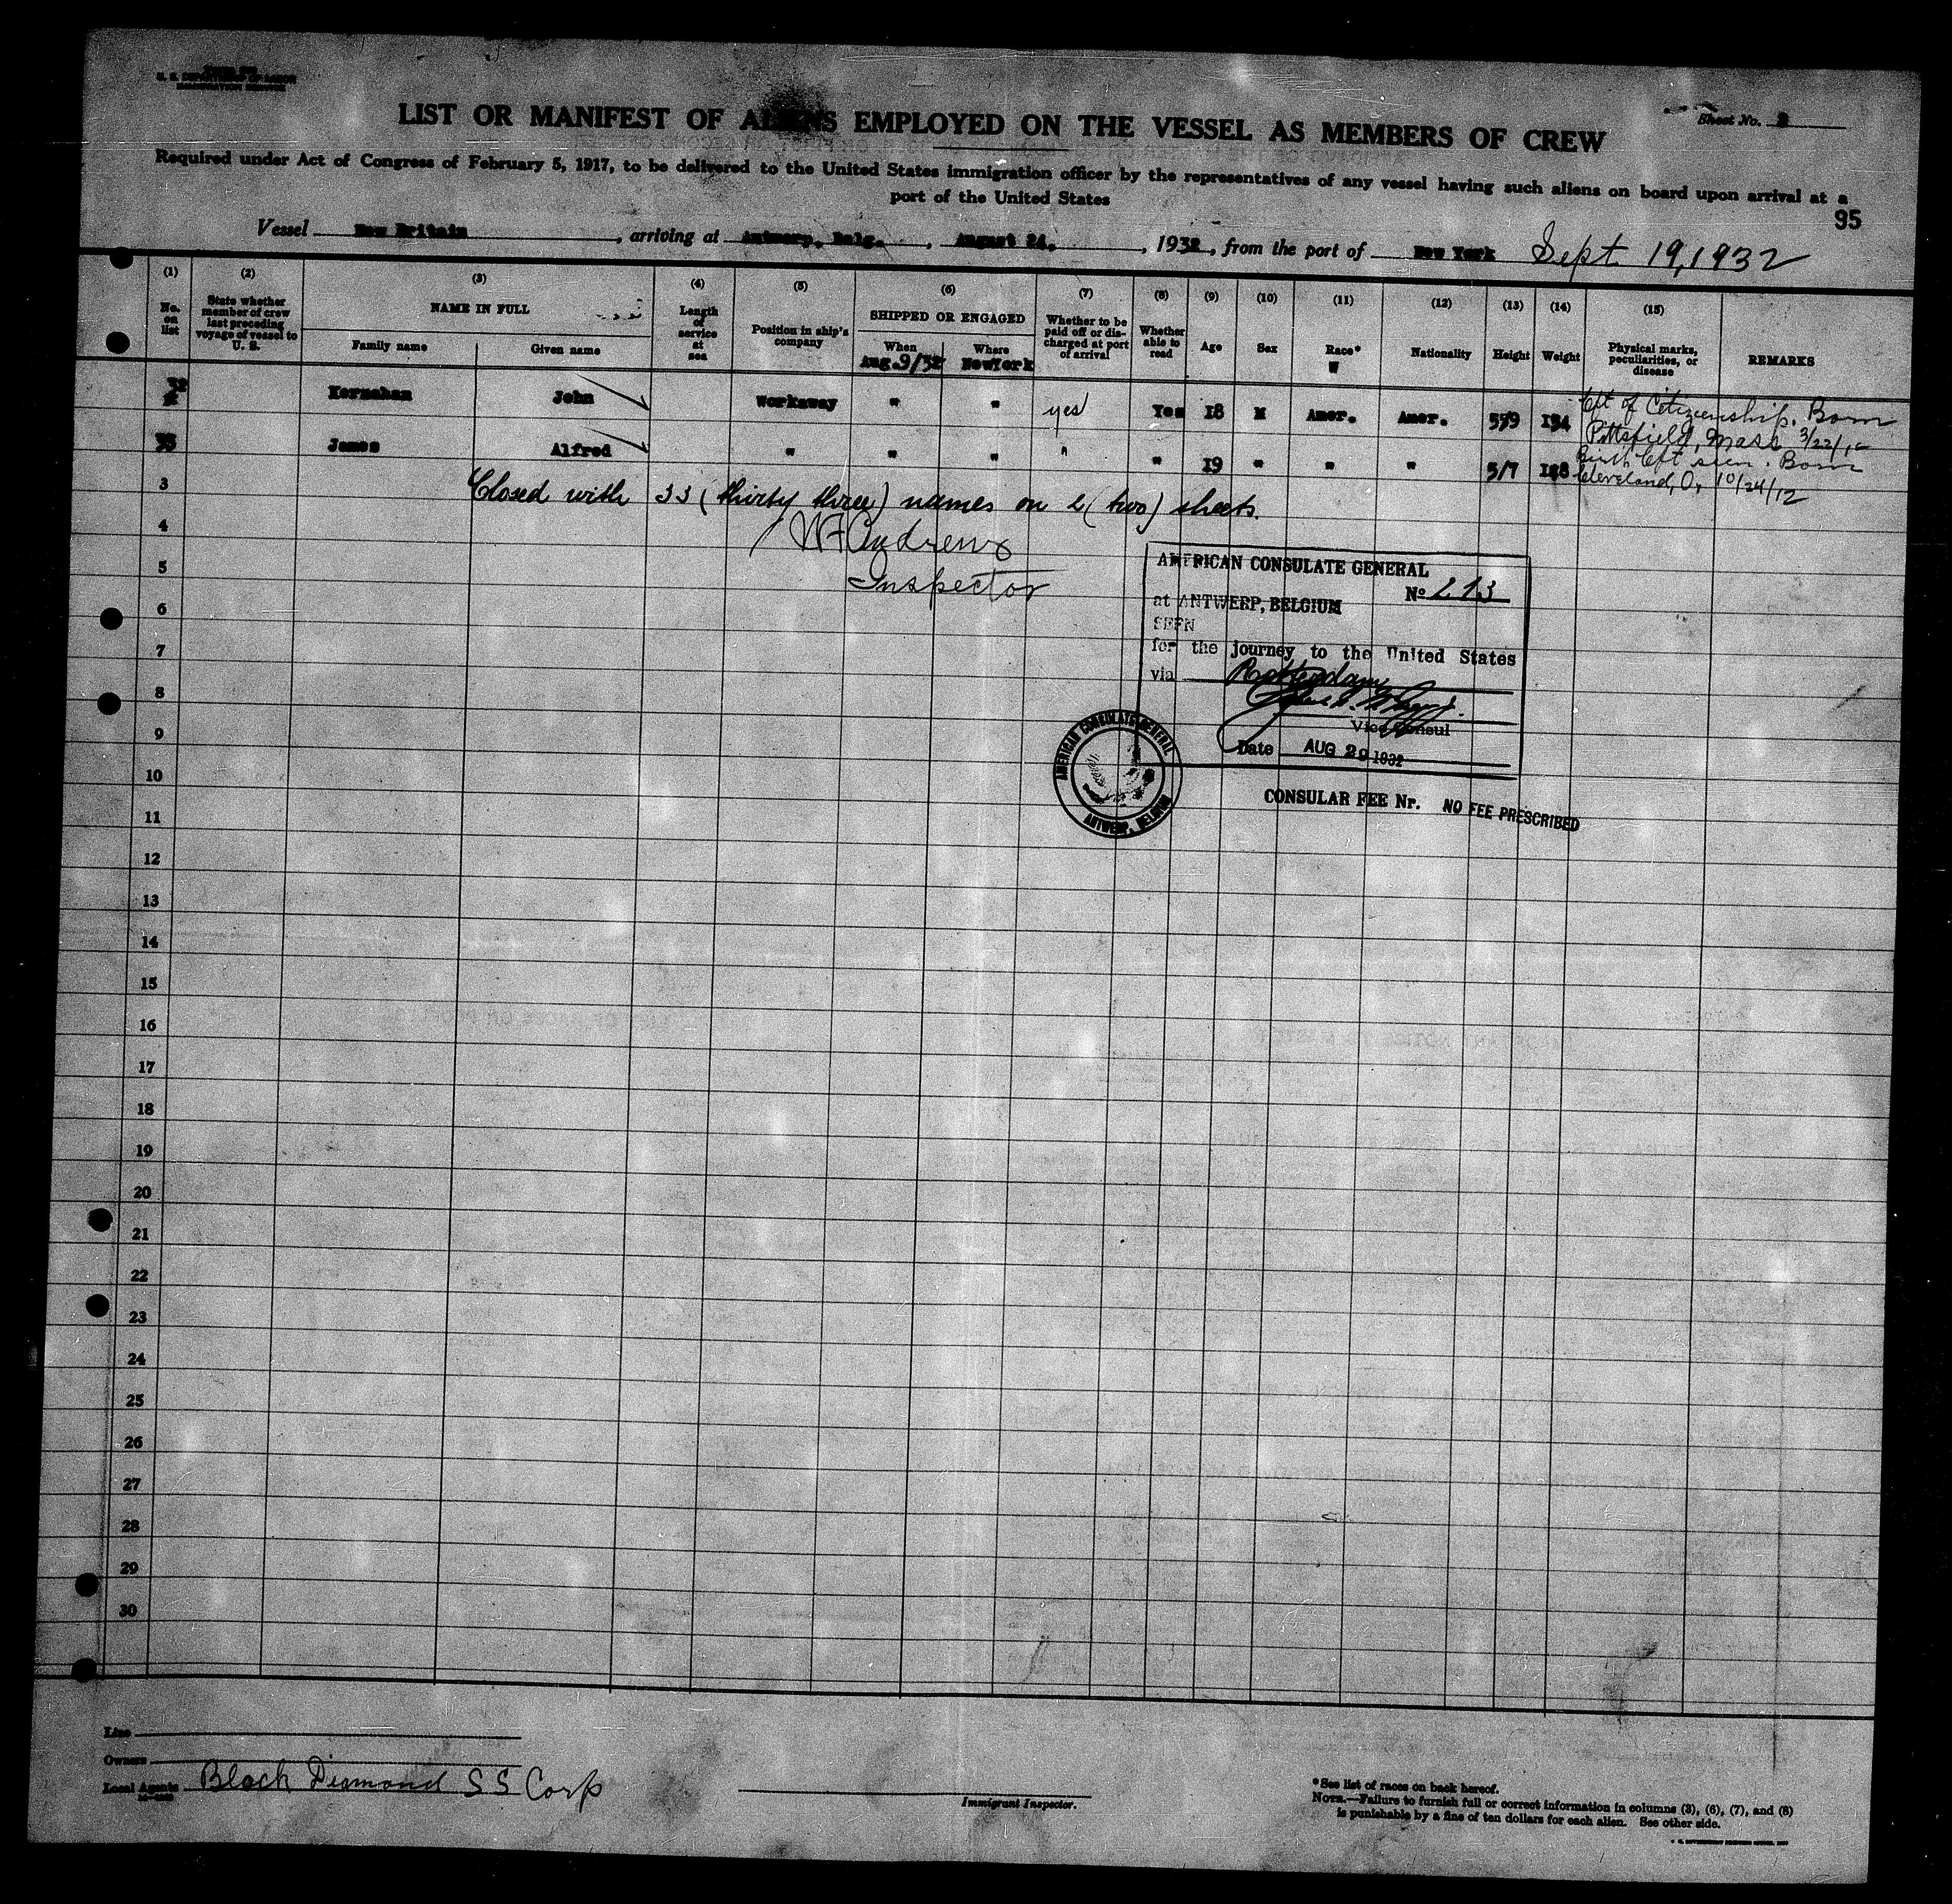 U. S. DEPARTMENT OF LABOR
IMMIGRATION SERVICE
Sheet No. 2
LIST OR MANIFEST OF ALIENS EMPLOYED ON THE VESSEL AS MEMBERS OF CREW
Required under Act of Congress of February 5, 1917, to be delivered to the United States immigration officer by the representatives of any vessel having such aliens on board upon arrival at a
port of the United States
95
Vessel New Britain, arriving at Antwerp, Belg., August 24, 1932, from the port of New York Sept 19, 1932
(1) (2) (3) (4) (5) (6) (7) (8) (9) (10) (11) (12) (13) (14) (15)
No. on list
State whether member of crew last preceding voyage of vessel to U. S.
NAME IN FULL
Family name
Given name
Length of service at sea
Position in ship's company
SHIPPED OR ENGAGED
When
Aug 9/32
Where
NewYork
Whether to be paid off or discharged at port of arrival
Whether able to read
Age
Sex
Race*
W
Nationality
Height
Weight
Physical marks, peculiarities, or disease
REMARKS
32 Kernahan John Workaway " " yes Yes 18 M Amer. Amer. 5/9 134 Cft of Citizenship. Born
Pittsfield, Mass
33 James Alfred " " " " " 19 " " " 5/7 Birth Cft seen. Born
Cleveland, O, 10/24/12
3 Closed with 33 (thirty three) names on 2 (two) sheets.
4 WF Andrews
5 Inspector
6
7
8
9
10
11
12
13
14
15
16
17
18
19
20
21
22
23
24
25
26
27
28
29
30
AMERICAN CONSULATE GENERAL
No 213
at ANTWERP, BELGIUM
SEEN
for the journey to the United States
via Rotterdam
Vice Consul
Date AUG 29 1932
AMERICAN CONSULATE GENERAL
ANTWERP, BELGIUM
CONSULAR FEE Nr. NO FEE PRESCRIBED
Line
Owners
Local Agents Black Diamond SS Corp
Immigrant Inspector.
*See list of races on back hereof.
NOTE.—Failure to furnish full or correct information in columns (3), (6), (7), and (8)
is punishable by a fine of ten dollars for each alien. See other side.